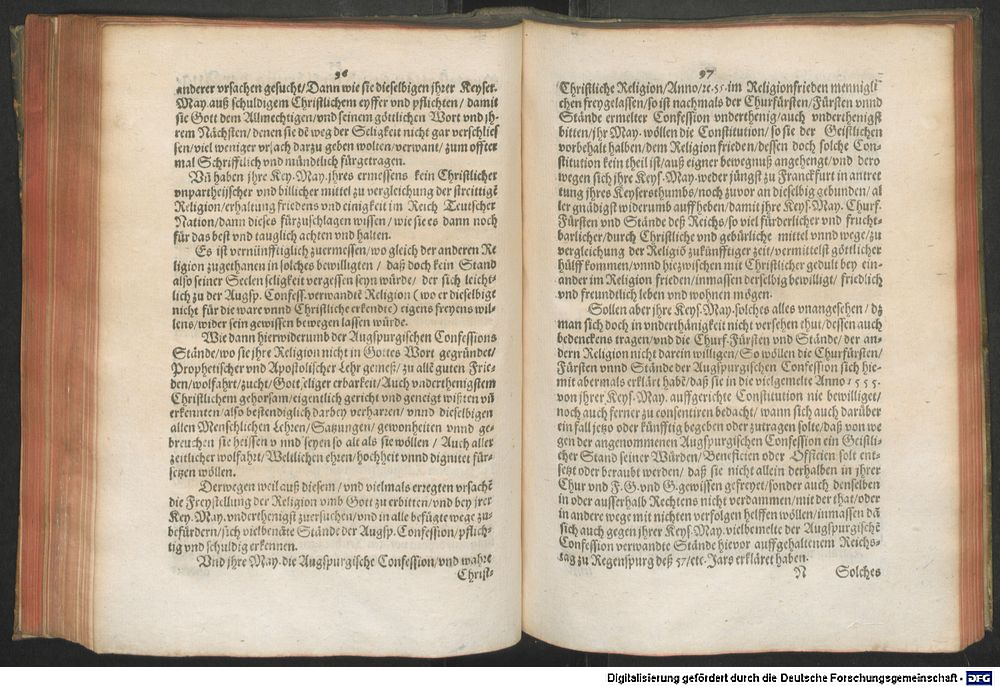 96
anderer vrsachen gesucht/Dann wie sie dieselbigen jhrer Keyser.
May. auß schuldigem Christlichem eyffer vnd pflichten / damit
sie Gott dem Allmechtigen/vnd seinem göttlichen Wort vnd jh-
rem Nächsten/denen sie dē weg der Seligkeit nicht gar verschlies
sen/viel weniger vrsach darzu geben wolten/verwant/zum offter
mal Schrifftlich vnd mündtlich fürgetragen.
Vñ haben jhre Key.May.jhres ermessens kein Christlicher
vnpartheijscher vnd billicher mittel zu vergleichung der strcittigē
Religion/erhaltung friedens vnd einigkeit im Reich Teutscher
Nation/dann dieses fürzuschlagen wissen/wie sie es dann noch
für das best vnd tauglich achten vnd halten.
Es ist vernünfftiglich zuermessen/wo gleich der anderen Re
ligion zugethanen in solches bewilligten / daß doch kein Stand
also seiner Seelen seligkeit vergessen seyn würde/ der sich leicht-
lich zu der Augsp. Confess.verwandtē Religion (wo er dieselbige
nicht für die ware vnnd Christliche erkendte) eigens freyens wil-
lens/wider sein gewissen bewegen lassen würde.
Wie dann hierwiderumb der Augspurgischen Confessions
Stände/wo sie jhre Religion nicht in Gottes Wort gegründet/
Prophetischer vnd Apostolischer Lehr gemeß/zu allē guten Frie-
den/wolfahrt/zucht/Gottseliger erbarkeit/Auch vnderthenigstem
Christlichem gehorsam/eigentlich gericht vnd geneigt wißten vñ
erkennten/also bestendiglich darbey verharren/ vnnd dieselbigen
allen Menschlichen Lehren/Satzungen/ gewonheiten vnnd ge-
breuchen sie heissen vnnd seyen so alt als sie wöllen / Auch aller
zeitlicher wolfahrt/Weltlichen ehren/hochheit vnnd dignitet für-
setzen wöllen.
Derwegen weil auß diesem / vnd vielmals erregten vrsachē
die Freystellung der Religion vmb Gott zu erbitten/vnd bey jrer
Key.May.vnderthenigst zuersuchen/vnd in alle befügte wege zu-
befürdern/sich vielbenāte Stände der Augsp.Confession/pflich-
tig vnd schuldig erkennen.
Vnd jhre May.die Augspurgische Confession/vnd wahre
Christ-
97
Christliche Religion/Anno/ꝛc.55.im Religionfrieden mennigli
chen freygelassen/so ist nachmals der Churfürsten/Fürsten vnnd
Stände ermelter Confession vnderthenig/auch vnderthenigst
bitten/jhr May.wöllen die Constitution/so sie der Geistlichen
vorbehalt halben/dem Religion frieden/dessen doch solche Con-
stitution kein theil ist/auß eigner bewegnuß angehengt/vnd dero
wegen sich jhre Key.May.weder jüngst zu Franckfurt in antret
tung jhres Keyserthumbs/noch zuvor an dieselbig gebunden/al
ler gnädigst widerumb auffheben/damit jhre Keys.May. Churf.
Fürsten vnd Stände deß Reichs/so viel fürderlicher vnd frucht-
barlicher/durch Christliche vnd gebürliche mittel vnnd wege/zu
vergleichung der Religiō zukünfftiger zeit/vermittelst göttlicher
hülff kommen/vnnd hiezwischen mit Christlicher gedult bey ein-
ander im Religion frieden/inmassen derselbig bewilligt/ friedlich
vnd freundtlich leben vnd wohnen mögen.
Sollen aber jhre Keys.May.solches alles vnangesehen / dz
man sich doch in vnderthänigkeit nicht versehen thut/dessen auch
bedenckens tragen/vnd die Churf-Fürsten vnd Stände/der an-
dern Religion nicht darein willigen/So wöllen die Churfürsten/
Fürsten vnnd Stände der Augspurgischen Confession sich hie-
mit abermals erklärt habē/daß sie in die vielgemelte Anno 1555.
von jhrer Keys.May. auffgerichte Constitution nie bewilliget/
noch auch ferner zu consentiren bedacht/ wann sich auch darüber
ein fall jetzo oder künfftig begeben oder zutragen solte/daß von we
gen der angenommenen Augspurgischen Confession ein Geistli-
cher Stand seiner Würden/Beneficien oder Officien solt ent-
setzt oder beraubt werden/ daß sie nicht allein derhalben in jhrer
Chur vnd F.G.vnd G.gewissen gefreyet/sonder auch denselben
in oder ausserhalb Rechtens nicht verdammen/mit der that/oder
in andere wege mit nichten verfolgen helffen wöllen/inmassen dā
sich auch gegen jhrer Keys.May.vielbemelte der Augspurgischē
Confession verwandte Stände hievor auffgehaltenem Reichs-
tag zu Regenspurg deß 57/etc.Jars erkläret haben.
N Solches
Digitalisierung gefördert durch die Deutsche Forschungsgemeinschaft - DFG